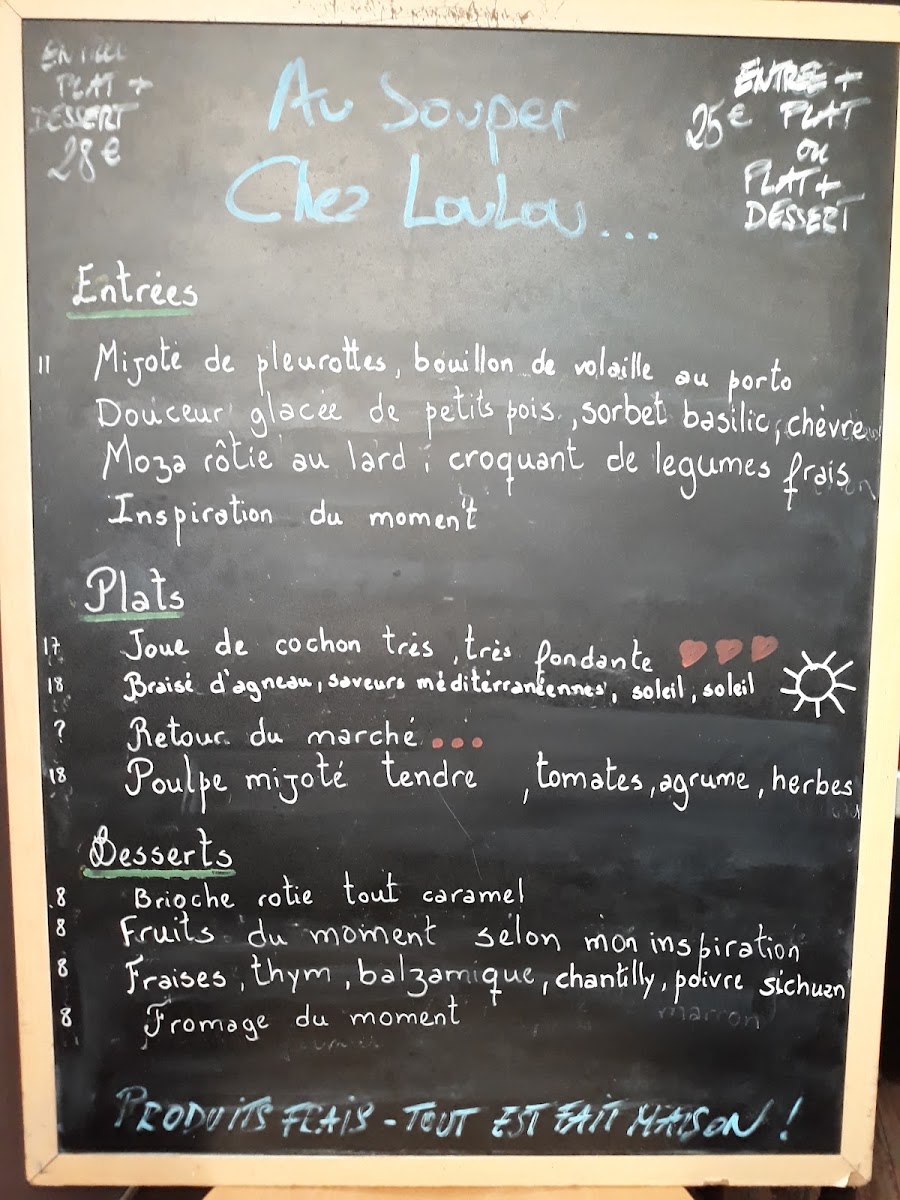 ENTREE
PLAT +
DESSERT
28€
Au Souper
Chez LouLou...
ENTREE +
25€ PLAT
ou
PLAT +
DESSERT
Entrées
11 Mijoté de pleurottes, bouillon de volaille au porto
Douceur glacée de petits pois, sorbet basilic, chèvre
Moza rôtie au lard, croquant de legumes frais
Inspiration du moment
Plats
17 Joue de cochon très, très fondante
18 Braisé d'agneau, saveurs méditérranéennes, soleil, soleil
? Retour du marché ...
18 Poulpe mijoté tendre, tomates, agrume, herbes
Desserts
8 Brioche rotie tout caramel
8 Fruits du moment sélon mon inspiration
8 Fraises, thym, balzamique, chantilly, poivre sichuan
8 Fromage du moment
marron
PRODUITS FRAIS - TOUT EST FAIT MAISON !